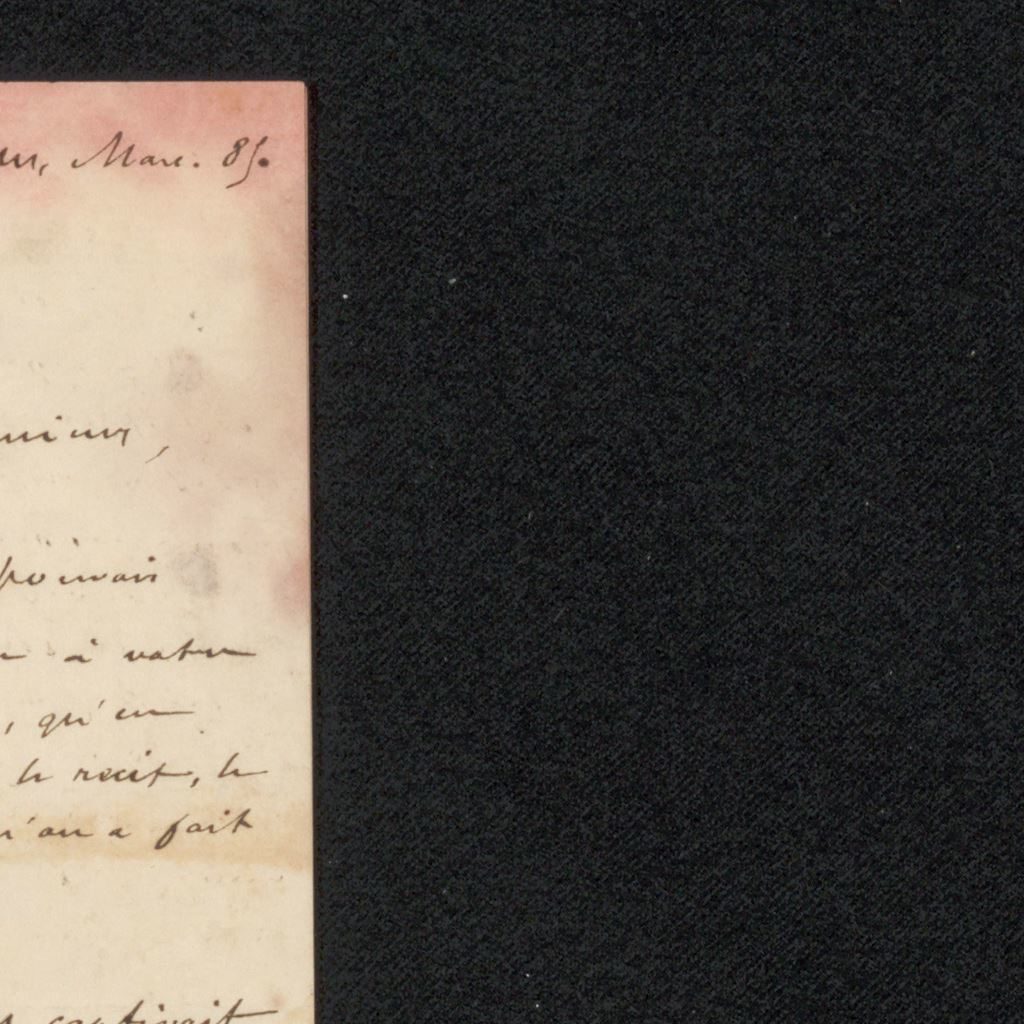 Mars. 85.
pouvais
à votre
, qu'en
le recit, le
qu'on a fait
captivait